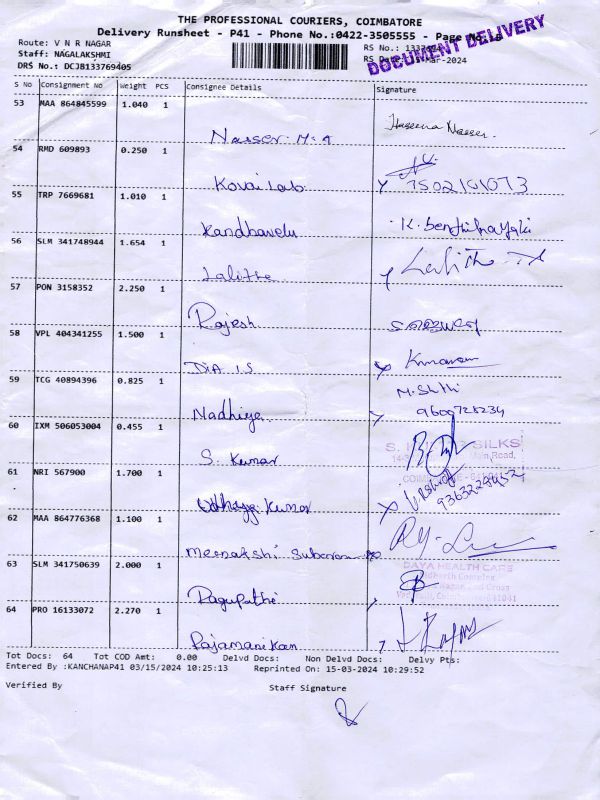 THE PROFESSIONAL COURIERS, COIMBATORE
Delivery Runsheet - P41 - Phone No.:0422-3505555 - Page No.:5
DOCUMENT DELIVERY
Route: V N R NAGAR
Staff: NAGALAKSHMI
DRS No.: DCJ8133769405
RS No.:
RS Date: 15-Mar-2024
S No Consignment No Weight PCS Consignee Details Signature
53 MAA 864845599 1.040 1
Nasser. M. A Haseena Nasser.
54 RMD 609893 0.250 1
Kovai Lab
55 TRP 7669681 1.010 1
Kandhavelu
56 SLM 341748944 1.654 1
Lalitha
57 PON 3158352 2.250 1
Rajesh
58 VPL 404341255 1.500 1
DIA I.S
59 TCG 40894396 0.825 1
Nadhiya 9609728234
60 IXM 506053004 0.455 1
SILKS
Main Road,
S. Kumar
61 NRI 567900 1.700 1
Udhaya Kumar
62 MAA 864776368 1.100 1
Meenakshi
63 SLM 341750639 2.000 1
DAYA HEALTH CARE
Ragupathi
64 PRO 16133072 2.270 1
Rajamanikam
Tot Docs: 64 Tot COD Amt: 0.00 Delvd Docs: Non Delvd Docs: Delvy Pts:
Entered By :KANCHANAP41 03/15/2024 10:25:13 Reprinted On: 15-03-2024 10:29:52
Verified By Staff Signature